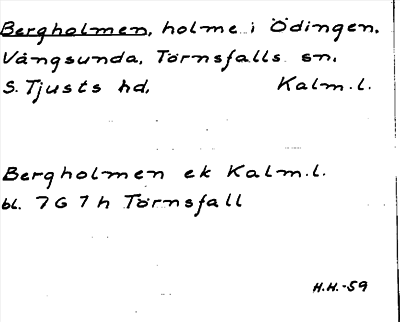 Bergholmen, holme i Ödingen,
Vångsunda, Törnsfalls sn.
S. Tjusts hd. Kalm.l.
Bergholmen ek Kalm.l.
bl. 7 G 7 h Törnsfall
H.H.-59